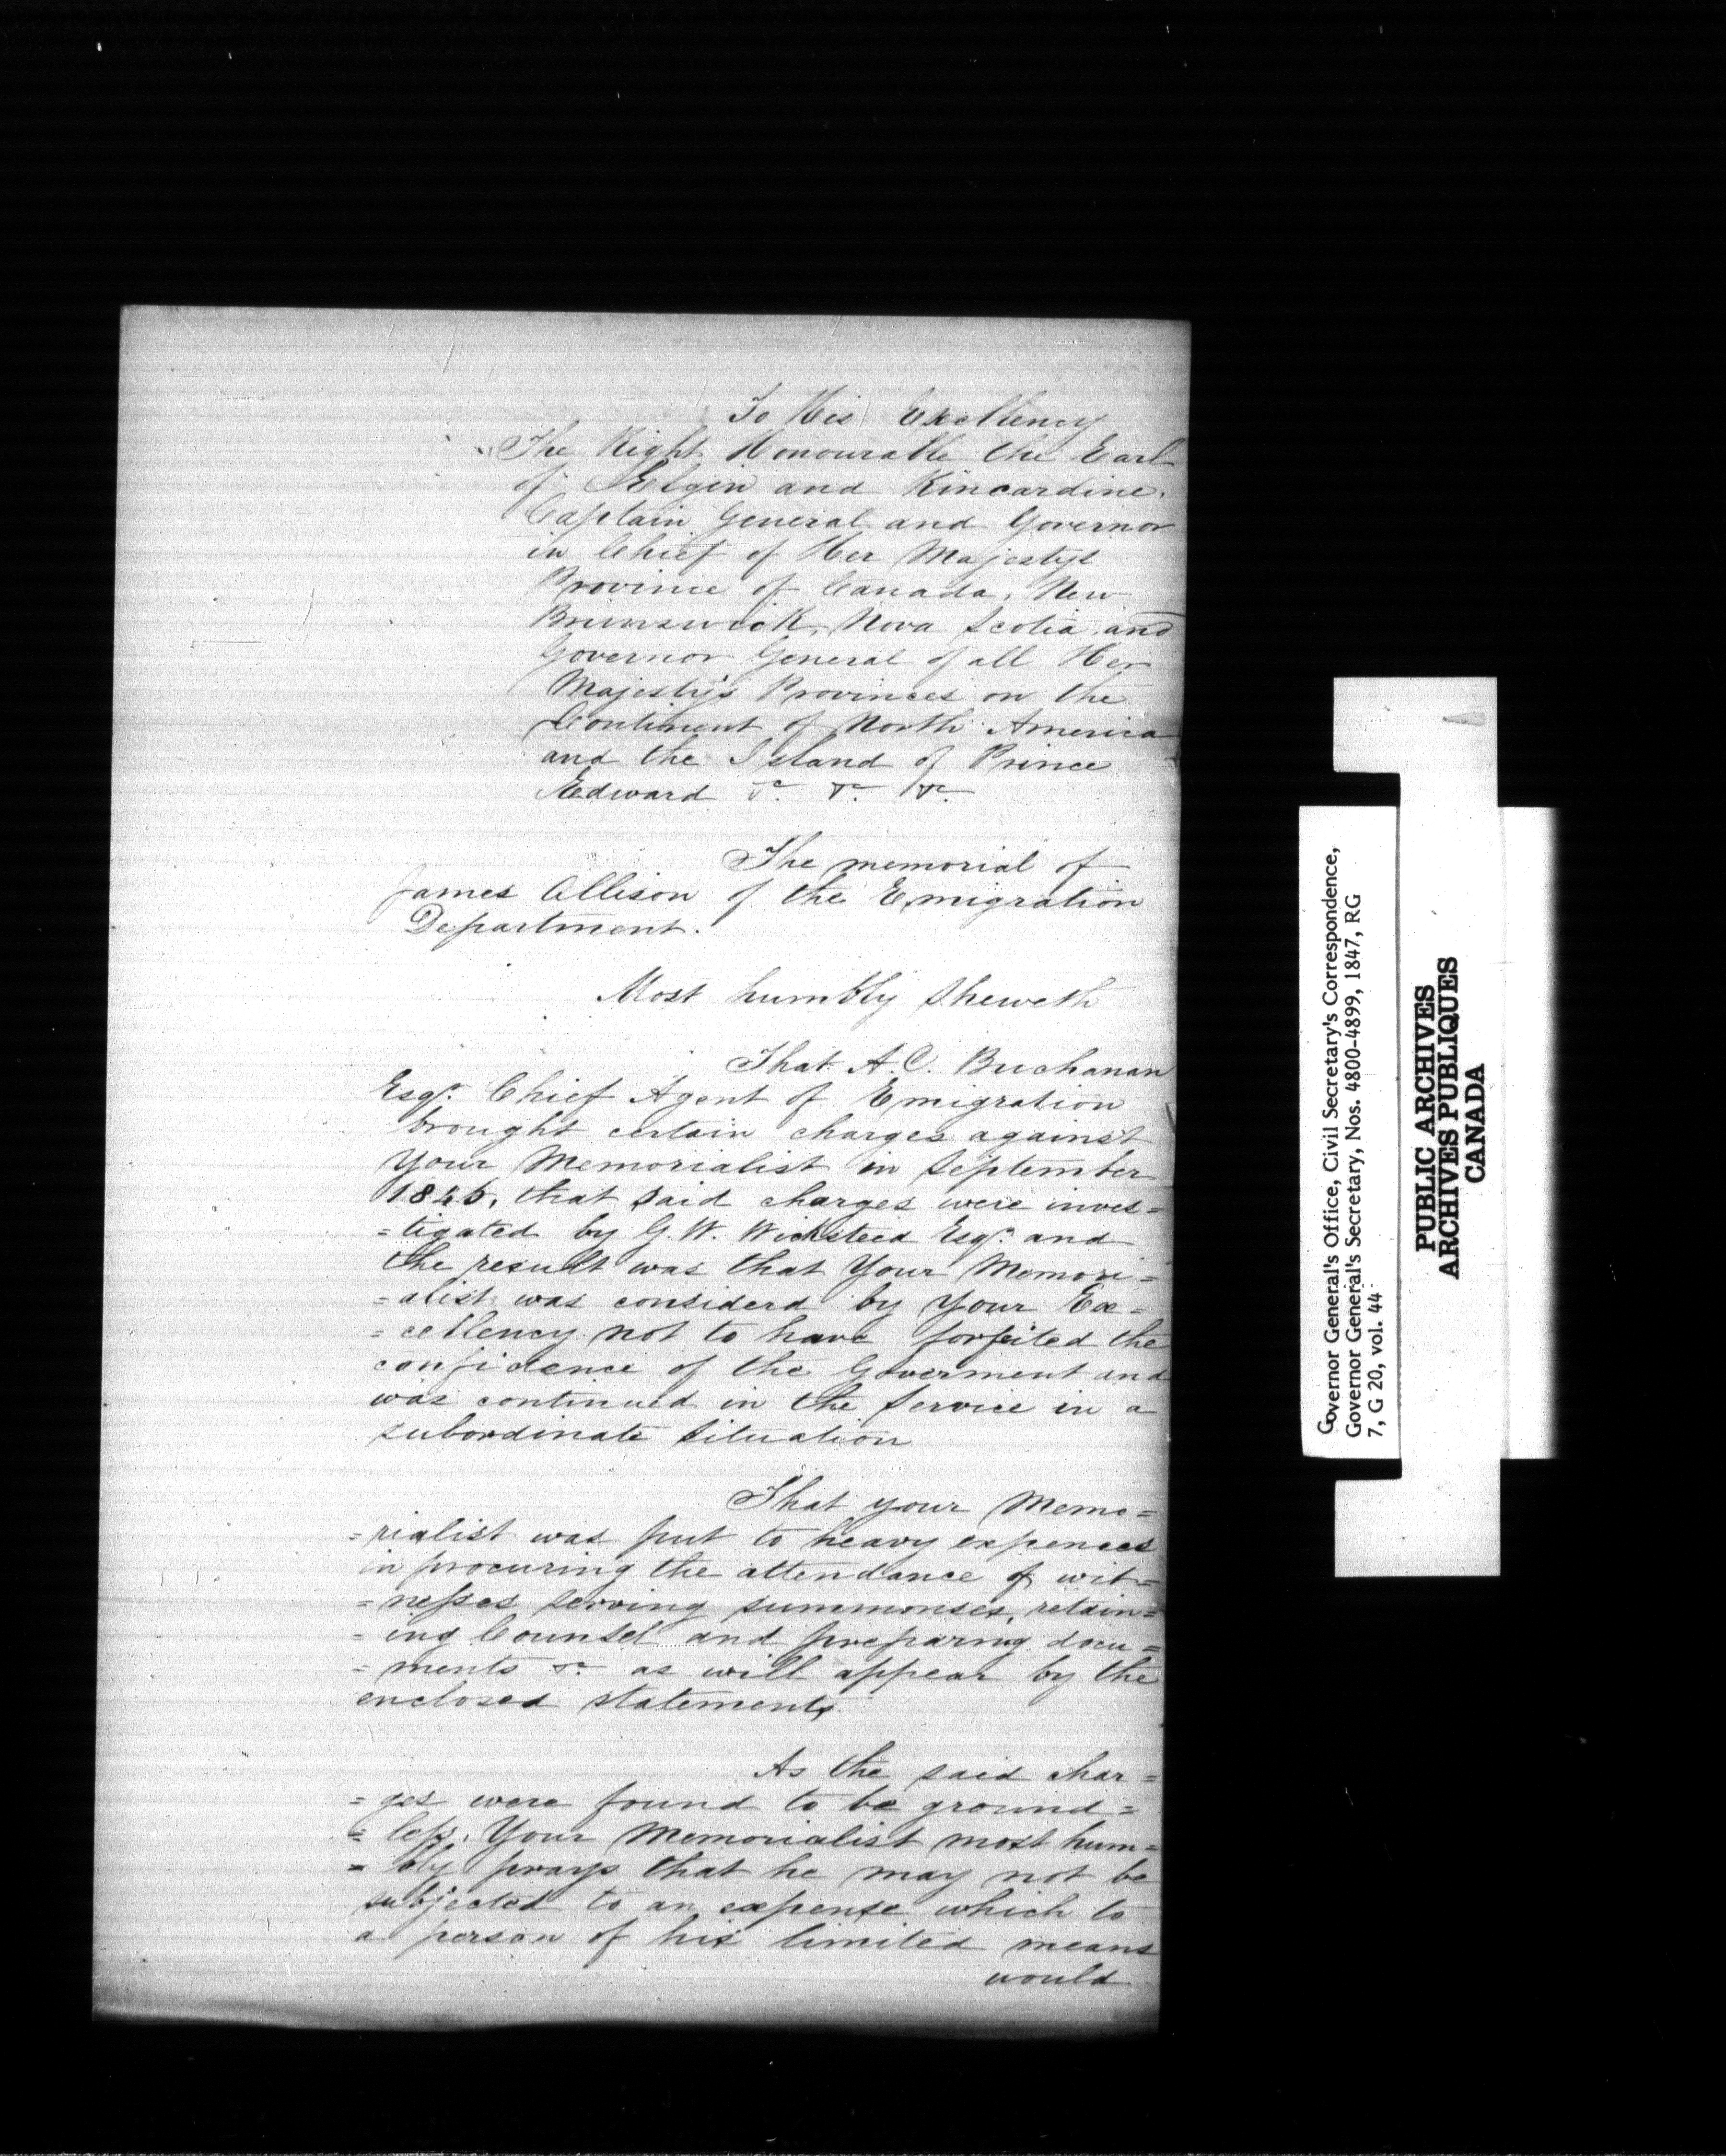 To His Excellency
The Right Honourable the Earl
of Elgin and Kincardine.
Captain General and Governor
in Chief of Her Majestys
Province of Canada, New
Brunswick, Nova Scotia and
Governor General of all Her
Majesty's Provinces on the
Continent of North America
and the Island of Prince
Edward &c. &c. &c.
The memorial of
James Allison of the Emigration
Department.
Most humbly Sheweth
That A.C. Buchanan
Esqr. Chief Agent of Emigration
brought certain charges against
Your Memorialist in September
1846, that said charges were inves=
=tigated by G.W. Wicksteed Esqr. and
the result was that Your Memori=
=alist was considerd by Your Ex=
=cellency not to have forfeited the
confidence of the Goverment and
was continued in the Service in a
subordinate Situation
That your Memo=
=rialist was put to heavy expences
in procuring the attendance of wit=
=nesses serving summonses, retain=
=ing Counsel and preparing docu=
=ments &c as will appear by the
enclosed statements
As the said char=
=ges were found to be ground=
=less. Your Memorialist most hum=
=bly prays that he may not be
subjected to an expense which to
a person of his limited means
would
Governor General's Office, Civil Secretary's Correspondence,
Governor General's Secretary, Nos. 4800-4899, 1847, RG
7, G 20, vol. 44
PUBLIC ARCHIVES
ARCHIVES PUBLIQUES
CANADA